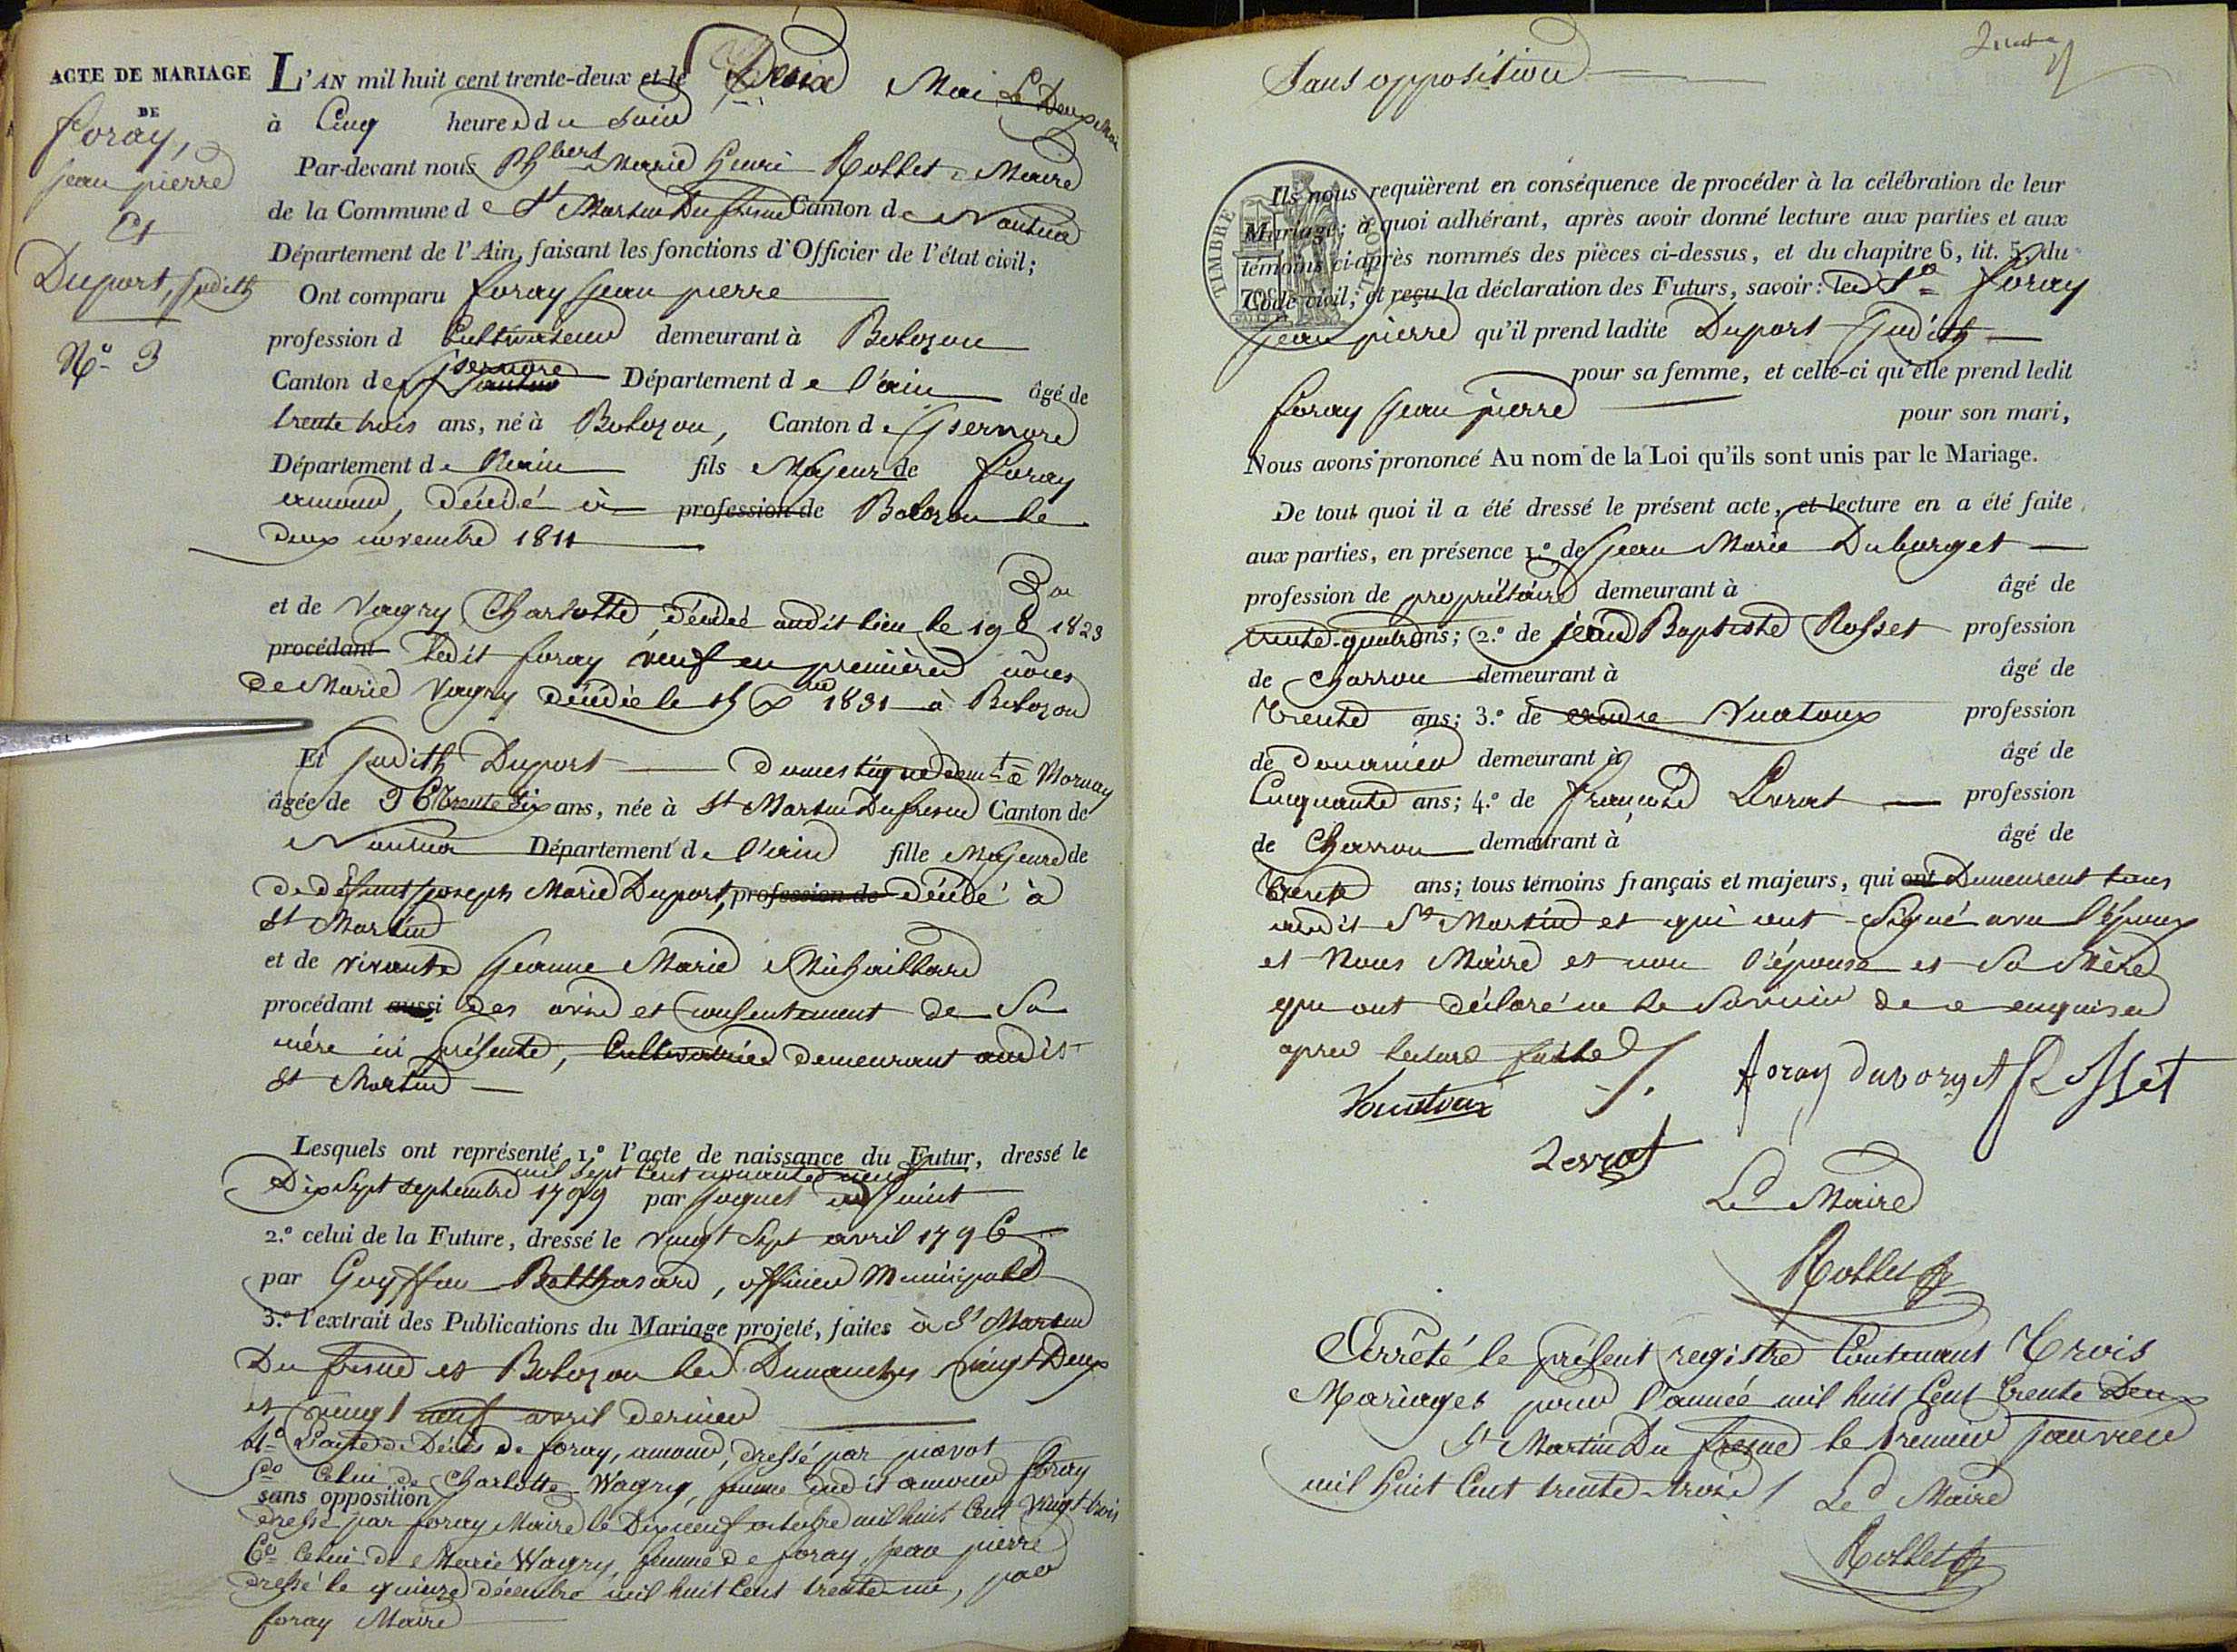 ACTE DE MARIAGE
DE
foray,
jean pierre
Et
Duport, judith
N.º 3
L'AN mil huit cent trente-deux et le Deux Mai Le Deux Mai
à Cinq heures du soir
Par-devant nous Phbert Marie henri Rollet, Maire
de la Commune de St Martin Du fresne Canton de Nantua
Département de l'Ain, faisant les fonctions d'Officier de l'état civil;
Ont comparu foray jean pierre
profession d Cultivateur demeurant à Bolozon
Canton de jsernore Nantua Département de l'ain âgé de
trente trois ans, né à Bolozon, Canton d jsernore
Département de l'ain fils Majeur de foray
amour, décédé à profession de Bolozon le
deux novembre 1811
et de Vagry Charlotte, décédé audit lieu le 19 8bre 1823
procédant ledit foray veuf en premières nôces
de Marie Vagry décédée le 15 Xbre 1831 à Bolozon
Et judith Duport domestique demt à Mornay
âgée de 36 trente six ans, née à St Martin Du fresne Canton de
Nantua Département de l'ain fille Majeure de
de défunt joseph Marie Duport, profession de décédé à
St Martin
et de vivante jeanne Marie Michaillard
procédant aussi des avis et consentement de Sa
mère ici présente, Cultivatrice demeurant audit
St Martin
Lesquels ont représenté 1.º l'acte de naissance du Futur, dressé le
mil sept Cent nonante neuf
Dix Sept septembre 1799 par joguet adjoint
2.º celui de la Future, dressé le vingt Sept avril 1796
par Guyffon Balthasard, officier Municipal
3.º l'extrait des Publications du Mariage projeté, faites à St Martin
Du fresne et Bolozon les Dimanches vingt Deux
et vingt neuf avril dernier
4.º L'acte de Décès de foray, amour, dressé par pavot
5º Celui de Charlotte Wagry, femme dudit amour foray
sans opposition
dressé par foray Maire le Dix neuf octobre mil huit Cent vingt trois
6º Celui de Marie Wagry, femme de foray jean pierre
dressé le quinze décembre mil huit Cent trente un, par
foray Maire
Sans opposition
TIMBRE ROYAL
Ils nous requièrent en conséquence de procéder à la célébration de leur
Mariage; à quoi adhérant, après avoir donné lecture aux parties et aux
témoins ci-après nommés des pièces ci-dessus, et du chapitre 6, tit. 5. du
Code civil, et reçu la déclaration des Futurs, savoir: led Sr foray
jean pierre qu'il prend ladite Duport judith
pour sa femme, et celle-ci qu'elle prend ledit
foray jean pierre pour son mari,
Nous avons prononcé Au nom de la Loi qu'ils sont unis par le Mariage.
De tout quoi il a été dressé le présent acte, et lecture en a été faite
aux parties, en présence 1.º de jean Marie Duborget
profession de propriétaire demeurant à âgé de
trente-quatre ans; 2.º de jean Baptiste Rosset profession
de Charron demeurant à âgé de
Trente ans; 3.º de andré Vuatoux profession
de Douanier demeurant à âgé de
Cinquante ans; 4.º de françois Levrat profession
de Charron demeurant à âgé de
trente ans; tous témoins français et majeurs, qui ont Demeurent tous
audit St Martin et qui ont Signé avec l'époux
et Nous Maire et non l'épouse et Sa Mère
qui ont déclaré ne le Savoir de ce enquises
après lecture faite
Vouatoux foray duborget Rosset
Levrat
Le Maire
Rollet
Arrêté le présent registre Contenant Trois
Mariages pour l'année mil huit Cent trente Deux
St Martin Du fresne le premier janvier
mil huit Cent trente-trois
Le Maire
Rollet